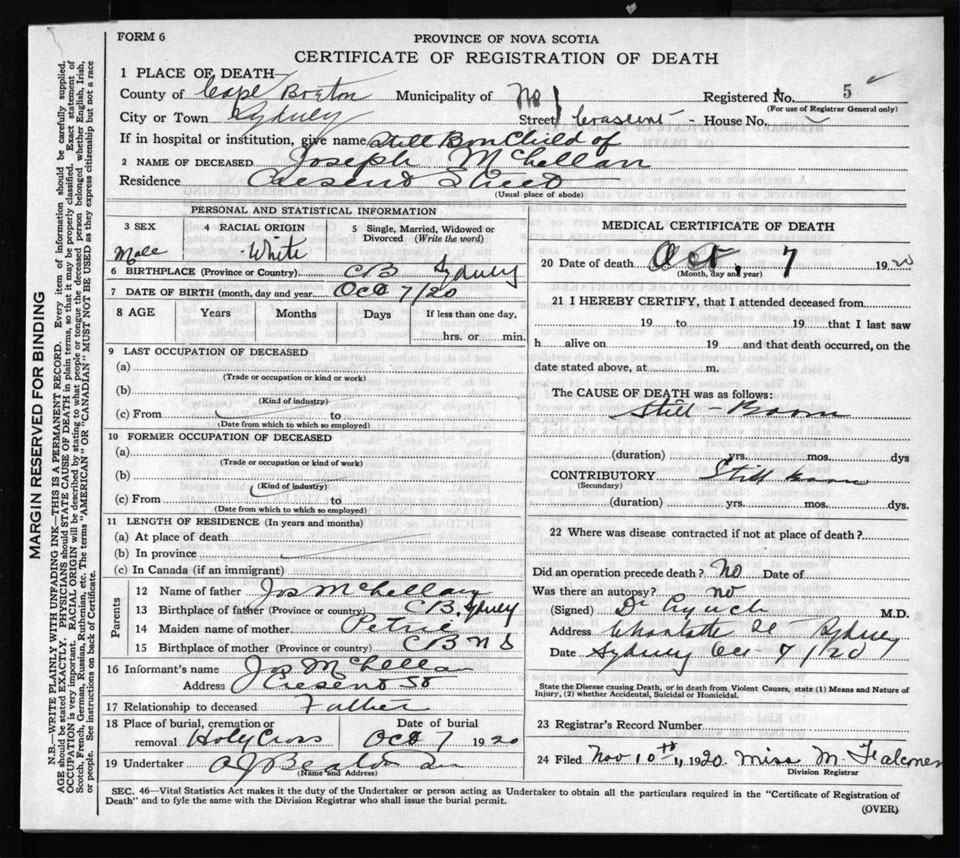 FORM 6
PROVINCE OF NOVA SCOTIA
CERTIFICATE OF REGISTRATION OF DEATH
1 PLACE OF DEATH—
County of Cape Breton Municipality of No 1 Registered No. 5
(For use of Registrar General only)
City or Town Sydney Street Crascent House No.
If in hospital or institution, give name Still Born Child of
2 NAME OF DECEASED Joseph McLellan
Residence Cresent Street
(Usual place of abode)
PERSONAL AND STATISTICAL INFORMATION
3 SEX Male
4 RACIAL ORIGIN White
5 Single, Married, Widowed or Divorced (Write the word)
6 BIRTHPLACE (Province or Country) CB Sydney
7 DATE OF BIRTH (month, day and year) Oct 7/20
8 AGE Years Months Days If less than one day, hrs. or min.
9 LAST OCCUPATION OF DECEASED
(a)
(Trade or occupation or kind or work)
(b)
(Kind of industry)
(c) From to
(Date from which to which so employed)
10 FORMER OCCUPATION OF DECEASED
(a)
(Trade or occupation or kind of work)
(b)
(Kind of industry)
(c) From to
(Date from which to which so employed)
11 LENGTH OF RESIDENCE (In years and months)
(a) At place of death
(b) In province
(c) In Canada (if an immigrant)
Parents
12 Name of father Jos McLellan
13 Birthplace of father (Province or country) C B. Sydney
14 Maiden name of mother Petrie
15 Birthplace of mother (Province or country) C B N S
16 Informant's name Jos McLellan
Address Cresent St
17 Relationship to deceased Father
18 Place of burial, cremation or removal Holy Cross Date of burial Oct 7 1920
19 Undertaker A J Beaton
(Name and Address)
MEDICAL CERTIFICATE OF DEATH
20 Date of death Oct, 7 1920
(Month, day and year)
21 I HEREBY CERTIFY, that I attended deceased from
19 to 19 that I last saw
h alive on 19 and that death occurred, on the
date stated above, at m.
The CAUSE OF DEATH was as follows:
Still-Boorn
(duration) yrs. mos. dys
CONTRIBUTORY Still born
(Secondary)
(duration) yrs. mos. dys.
22 Where was disease contracted if not at place of death?
Did an operation precede death? No Date of
Was there an autopsy? No
(Signed) Dr M.D.
Address Sydney
Date Sydney Oct 7/20
State the Disease causing Death, or in death from Violent Causes, state (1) Means and Nature of
Injury, (2) whether Accidental, Suicidal or Homicidal.
23 Registrar's Record Number
24 Filed Nov 10th 1920. Miss M. Falconer
Division Registrar
SEC. 46—Vital Statistics Act makes it the duty of the Undertaker or person acting as Undertaker to obtain all the particulars required in the "Certificate of Registration of
Death" and to fyle the same with the Division Registrar who shall issue the burial permit.
(OVER)
MARGIN RESERVED FOR BINDING
N.B.—WRITE PLAINLY WITH UNFADING INK—THIS IS A PERMANENT RECORD. Every item of information should be carefully supplied.
AGE should be stated EXACTLY. PHYSICIANS should STATE CAUSE OF DEATH in plain terms, so that it may be properly classified. Exact statement of
OCCUPATION is very important. RACIAL ORIGIN will be described by stating to what people or tongue the deceased person belonged whether English, Irish,
Scotch, French, German, Russian, Ruthenian, etc. The terms "AMERICAN" OR "CANADIAN" MUST NOT BE USED as they express citizenship but not a race
or people. See instructions on back of Certificate.